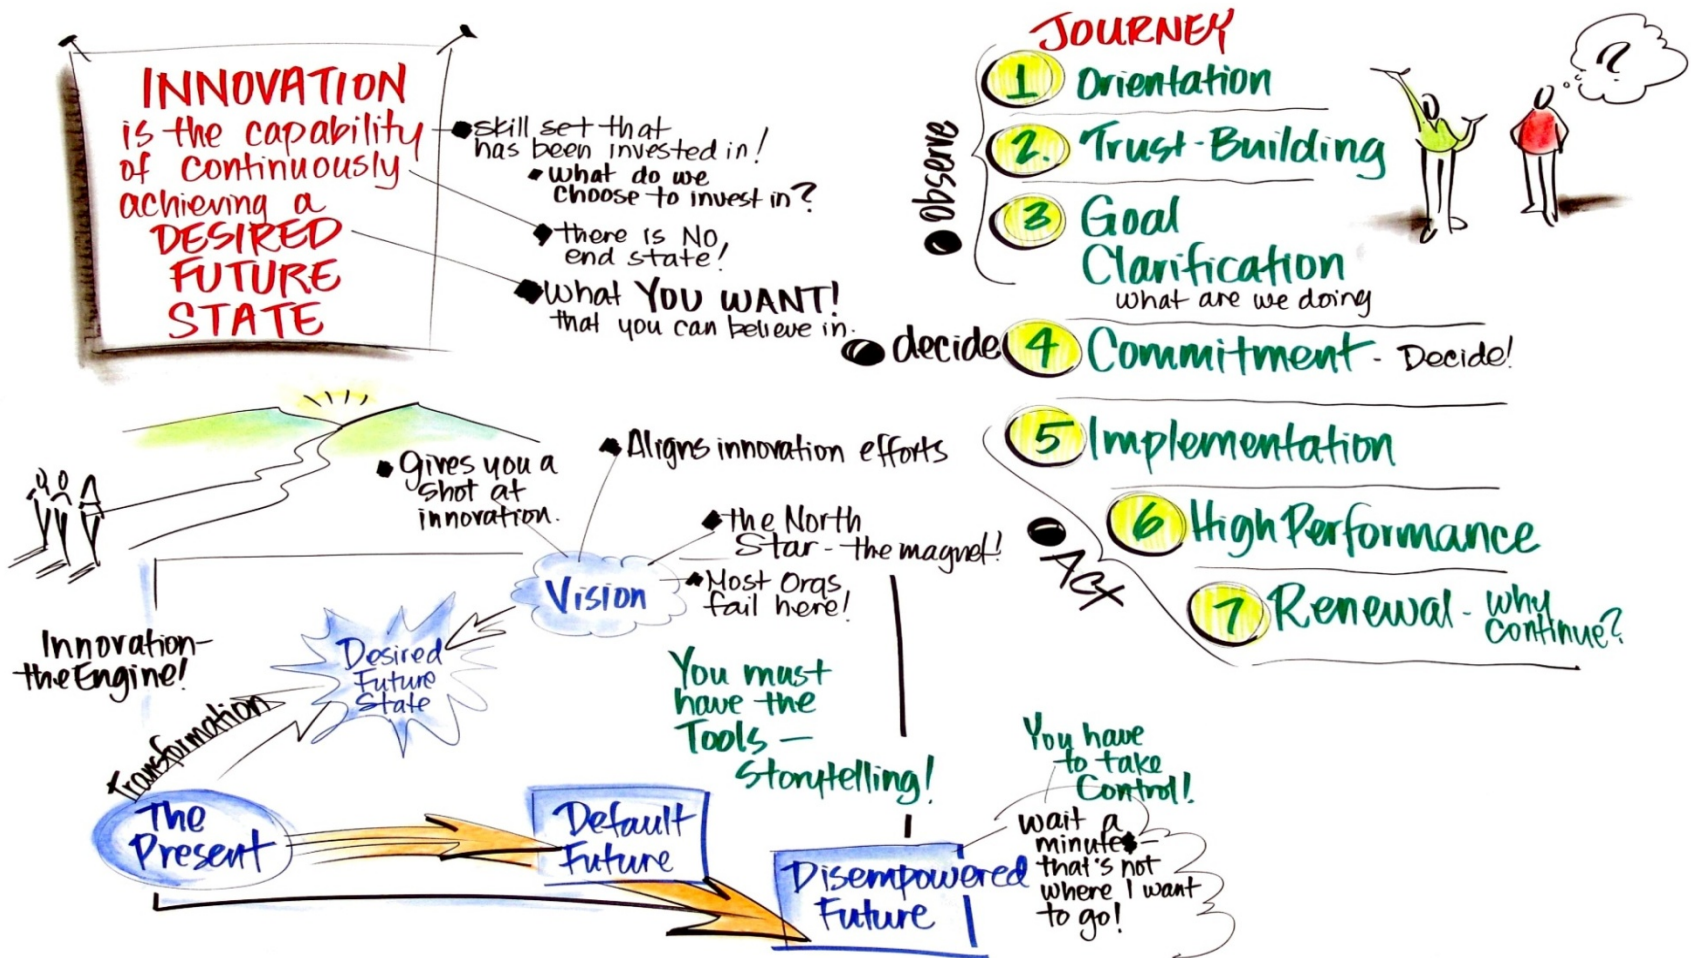 INNOVATION
is the capability
of continuously
achieving a
DESIRED
FUTURE
STATE
skill set that
has been invested in!
what do we
choose to invest in?
there is NO
end state!
what YOU WANT!
that you can believe in.
JOURNEY
observe
1 Orientation
2. Trust-Building
3 Goal
Clarification
what are we doing
decide
4 Commitment - Decide!
5 Implementation
6 High Performance
Act
7 Renewal - why
continue?
?
Gives you a
shot at
innovation.
Aligns innovation efforts
the North
Star - the magnet!
Most Orgs
fail here!
Vision
Innovation-
the Engine!
Desired
Future
State
Transformation
You must
have the
Tools -
Storytelling!
The
Present
Default
Future
Disempowered
Future
You have
to take
Control!
wait a
minute -
that's not
where I want
to go!